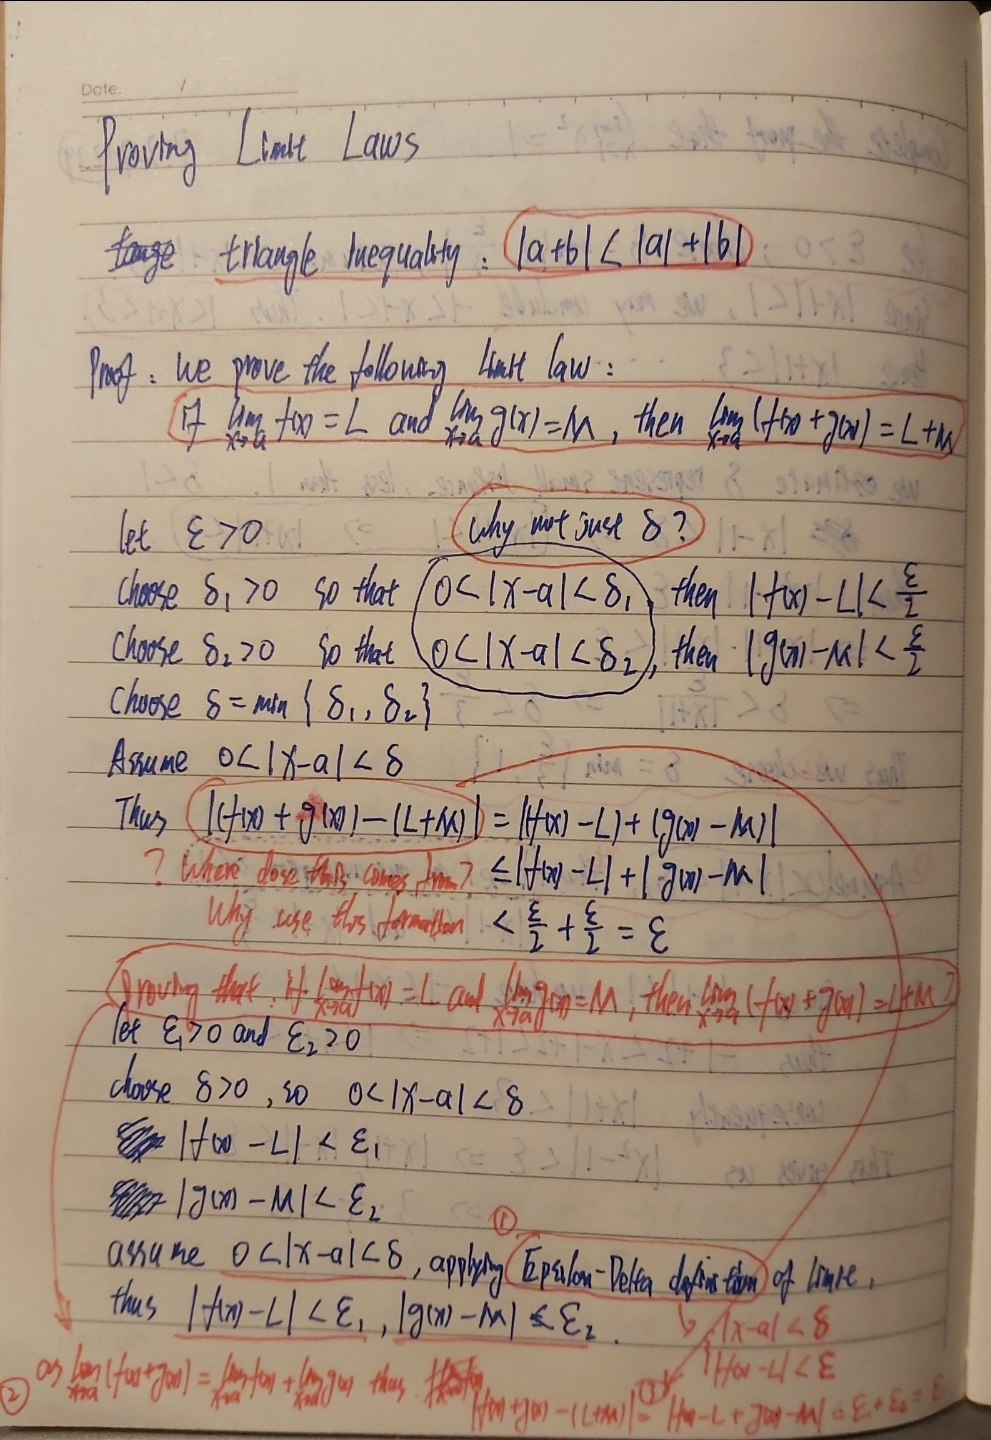 Date. /
Proving Limit Laws
triangle Inequality : |a+b| < |a|+|b|
Proof : We prove the following limit law :
If lim x→a f(x) = L and lim x→a g(x) = M , then lim x→a (f(x) + g(x)) = L + M
let ε > 0 Why not just δ ?
Choose δ₁ > 0 so that 0 < |x-a| < δ₁ , then |f(x) - L| < ε/2
Choose δ₂ > 0 so that 0 < |x-a| < δ₂ , then |g(x) - M| < ε/2
Choose δ = min { δ₁ , δ₂ }
Assume 0 < |x-a| < δ
Thus |(f(x) + g(x)) - (L+M)| = |(f(x) - L) + (g(x) - M)|
? Where dose this comes from ? ≤ |f(x) - L| + | g(x) - M|
Why use this formation < ε/2 + ε/2 = ε
Proving that : if lim x→a f(x) = L and lim x→a g(x) = M , then lim x→a (f(x) + g(x)) = L + M ?
let ε₁ > 0 and ε₂ > 0
choose δ > 0 , so 0 < |x-a| < δ
|f(x) - L| < ε₁
|g(x) - M| < ε₂
①
assume 0 < |x-a| < δ , applying Epsilon-Delta definition of limit ,
thus |f(x) - L| < ε₁ , |g(x) - M| ≤ ε₂ .
|x-a| < δ
|f(x) - L| < ε
② as lim x→a (f(x) + g(x)) = lim x→a f(x) + lim x→a g(x) thus
|f(x) + g(x) - (L+M)| = |f(x) - L + g(x) - M| = ε₁ + ε₂ = ε